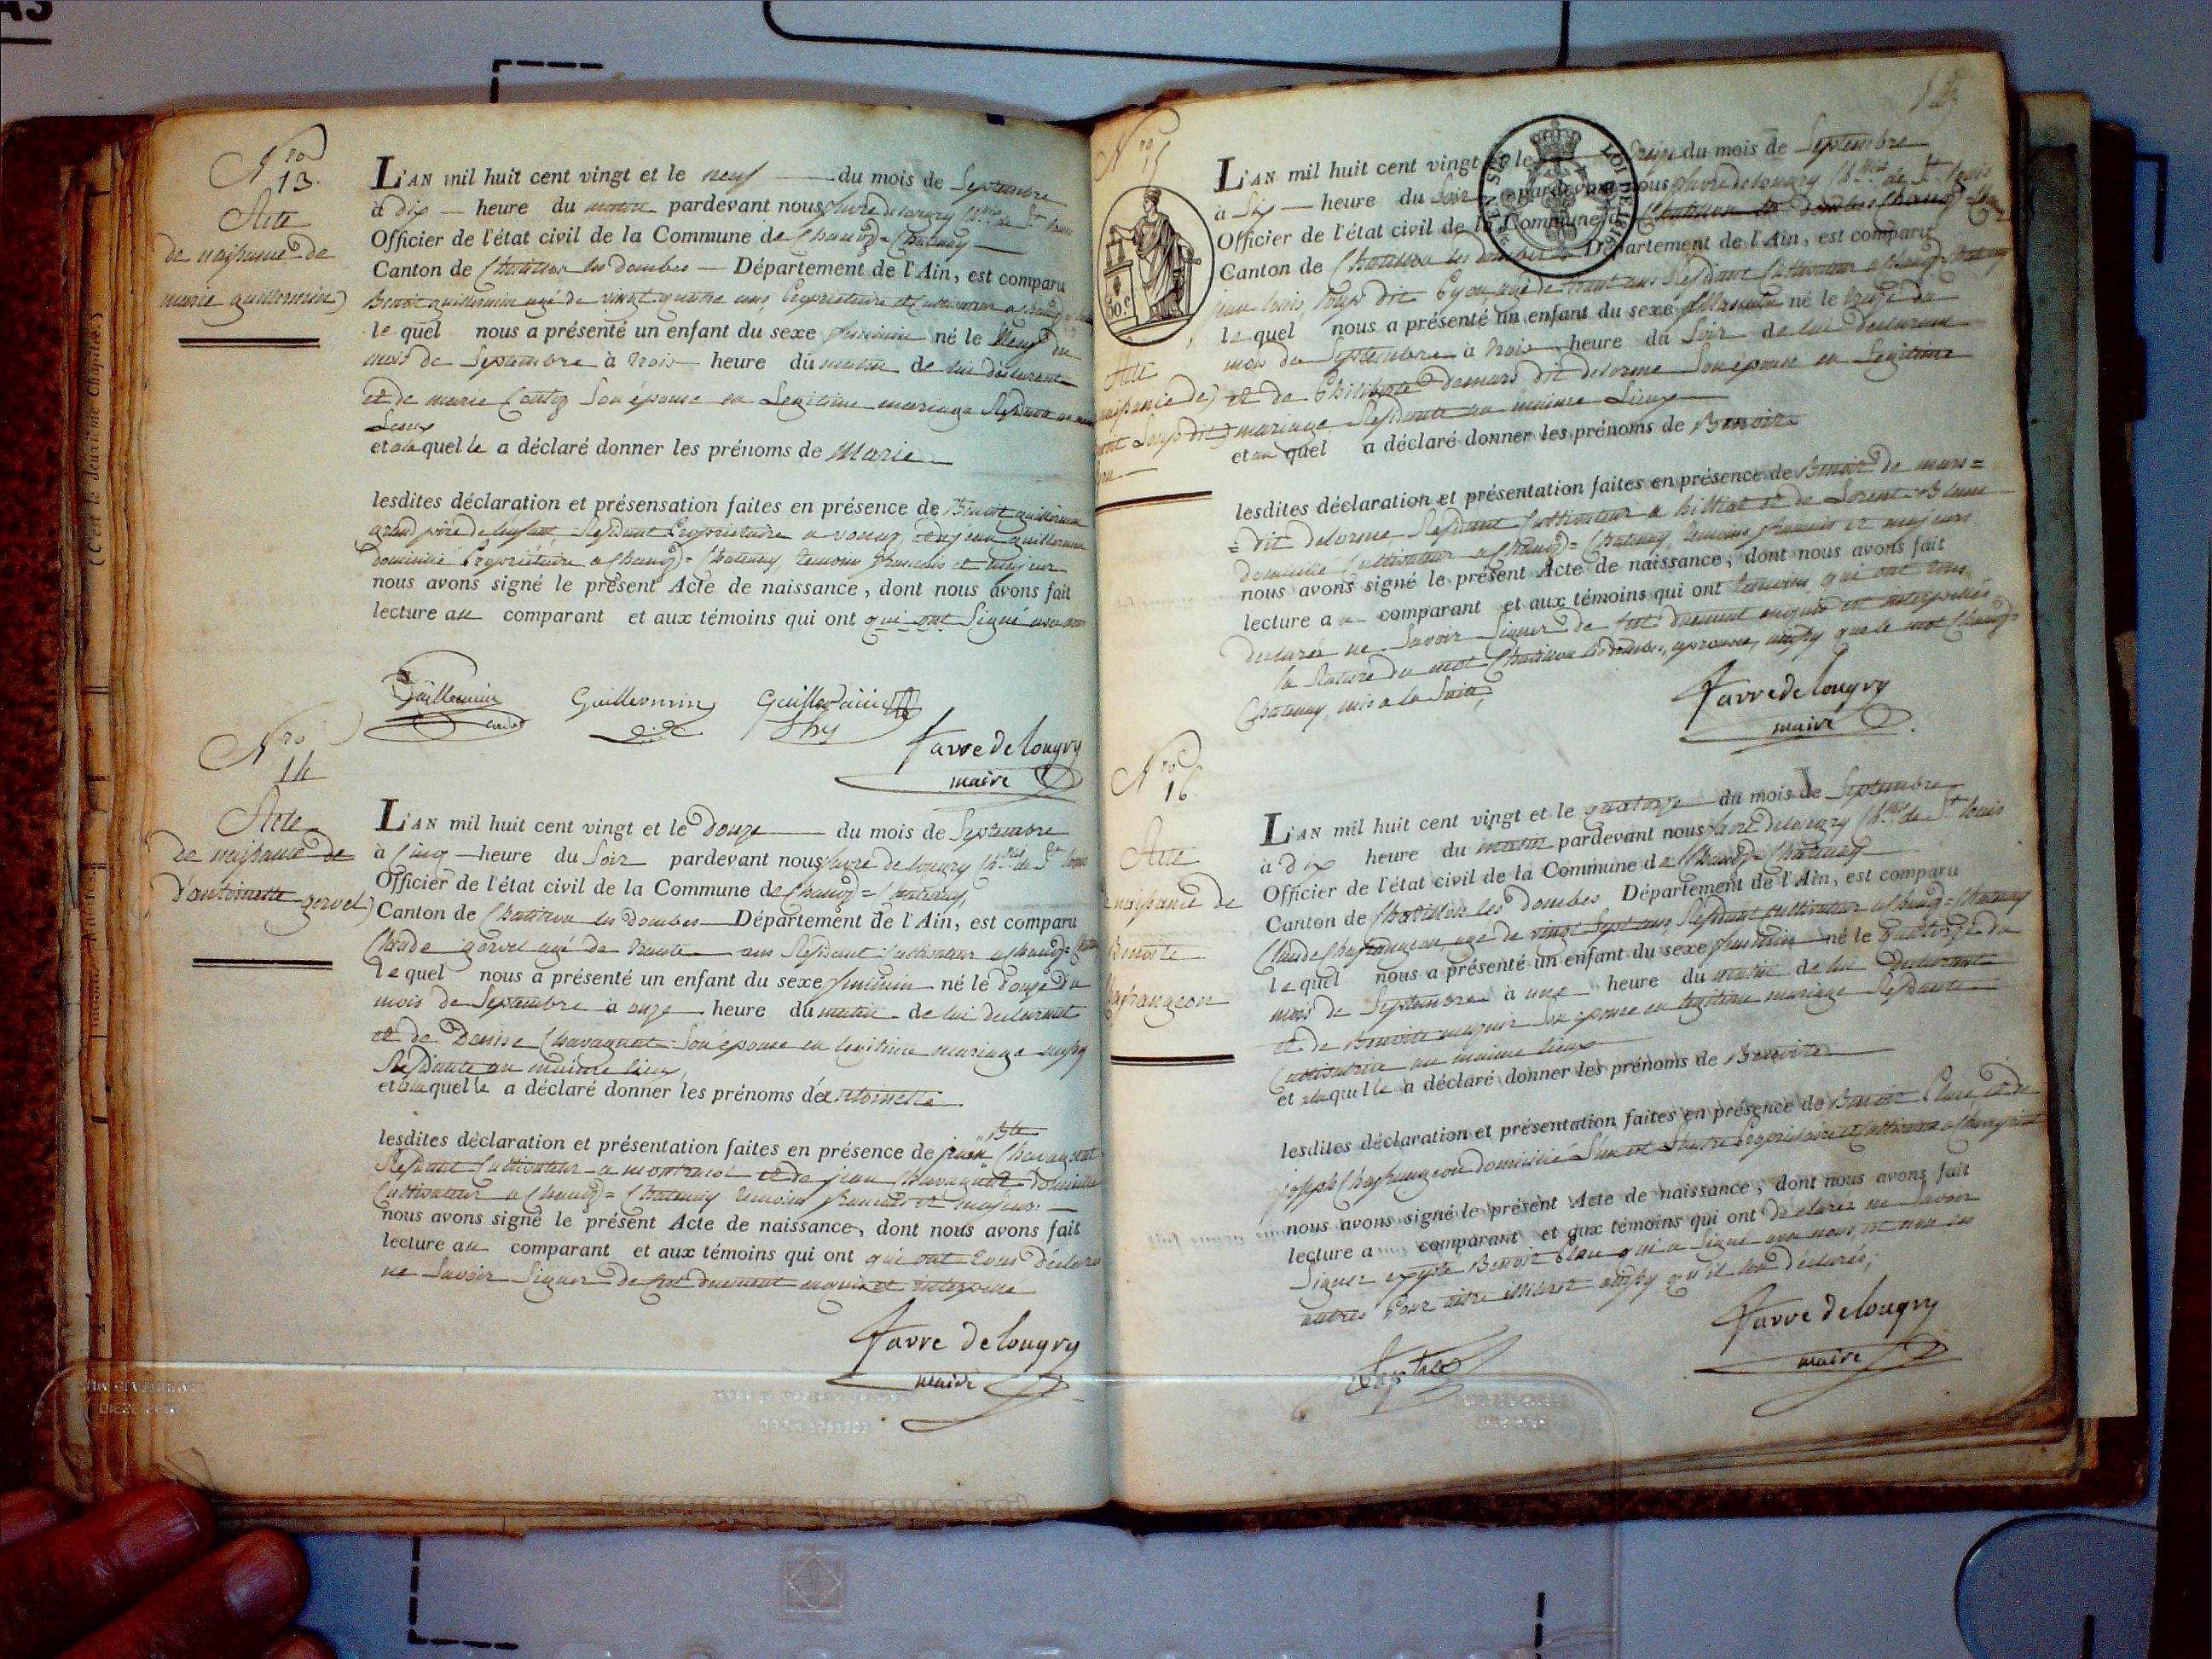 Nro
13.
Acte
de naissance de
marie guillermin
L'AN mil huit cent vingt et le neuf du mois de Septembre
à dix heure du matin pardevant nous favre de lougry de St louis
Officier de l'état civil de la Commune de Chanoz=Chatenay
Canton de Chatillon les dombes Département de l'Ain, est comparu
Benoit guillermin agé de vingt quatre ans, Proprietaire et Cultivateur a Chanoz
le quel nous a présenté un enfant du sexe feminin né le Neuf du
mois de Septembre à trois heure du matin de lui déclarant
et de marie Son épouse en Legitime mariage Residante au
Lieux
et a la quel le a déclaré donner les prénoms de Marie
lesdites déclaration et présensation faites en présence de Benoit guillermin
grand père de l'enfant, Residant Proprietaire a vonnaz, et de jean guillermin
domicilié Propriétaire a Chanoz=Chatenay temoins français et majeur
nous avons signé le présent Acte de naissance, dont nous avons fait
lecture au comparant et aux témoins qui ont qui ont Signé avec nous
Guillermin
Guillermin
Guillermin
favre de lougry
maire
Nro
14
Acte
de naissance de
d'antoinette gorvel
L'AN mil huit cent vingt et le douze du mois de Septembre
à Cinq heure du Soir pardevant nous favre de lougry de St louis
Officier de l'état civil de la Commune de Chanoz=Chatenay,
Canton de Chatillon les Dombes Département de l'Ain, est comparu
Claude gorvel agé de trente ans Residant Cultivateur a Chanoz=
le quel nous a présenté un enfant du sexe feminin né le douze du
mois de Septembre à onze heure du matin de lui declarant
et de Denise Chavagnat Son épouse en legitime mariage aussy
Residante au maime lieu,
et a la quel le a déclaré donner les prénoms d'antoinette
lesdites déclaration et présentation faites en présence de jean Bte Chavagnat
Residant Cultivateur a montracol et de jean Chavagnat domicilié
Cultivateur a Chanoz=Chatenay temoins francais et majeurs
nous avons signé le présent Acte de naissance, dont nous avons fait
lecture au comparant et aux témoins qui ont qui ont tous déclaré
ne Savoir Signer de fait duement enquis et interpellé
favre de lougry
maire
Nro
15
50c
TIMBRE
LOI DE 1816
Acte
naissance de
L'AN mil huit cent vingt et le treize du mois de Septembre
à Six heure du Soir pardevant nous favre de lougry de St louis
Officier de l'état civil de la Commune de Chatillon les dombes Chanoz
Canton de Chatillon les dombes Département de l'Ain, est comparu
jean louis, Loup dit agé de trente ans Residant Cultivateur a Chanoz=Chatenay
le quel nous a présenté un enfant du sexe né le treize du
mois de Septembre à trois heure du Soir de lui declarant
et de Philiberte Demars dit delorme Son épouse en Legitime
mariage Residante au maime Lieux
et au quel a déclaré donner les prénoms de Benoit
lesdites déclaration et présentation faites en présence de Benoit de mars=
=dit delorme Residant Cultivateur a et de Lorent
domicilié Cultivateur a Chanoz=Chatenay temoins francais et majeurs
nous avons signé le présent Acte de naissance, dont nous avons fait
lecture au comparant et aux témoins qui ont temoins, qui ont tous
declarés ne Savoir Signer de fait duement enquis et interpellés
la Rature du mot Chatillon les dombes, aprouvee, aussy que le mot Chanoz=
Chatenay, mis a la Suite,
favre de lougry
maire
Nro
16.
Acte
naissance de
Benoite
Chafrangeon
L'AN mil huit cent vingt et le quatorze du mois de Septembre
à dix heure du matin pardevant nous favre de lougry de St louis
Officier de l'état civil de la Commune de Chanoz=Chatenay
Canton de Chatillon les Dombes Département de l'Ain, est comparu
Claude Chafrangeon agé de vingt Sept ans Residant Cultivateur a Chanoz=Chatenay
le quel nous a présenté un enfant du sexe feminin né le quatorze du
mois de Septembre à une heure du matin de lui declarant
et de Benoite Son épouse en legitime mariage Residante
Cultivatrice au maime lieux
et a la quel le a déclaré donner les prénoms de Benoite
lesdites déclaration et présentation faites en présence de Benoit et de
joseph Chafrangeon domicilié l'un et l'autre Proprietaire et Cultivateur a
nous avons signé le présent Acte de naissance, dont nous avons fait
lecture a comparant et aux témoins qui ont declarés ne Savoir
Signer excepté Benoit qui a Signé avec nous et non les
autres Pour aitre illitere aussy qu'il l'on declarés,
favre de lougry
maire